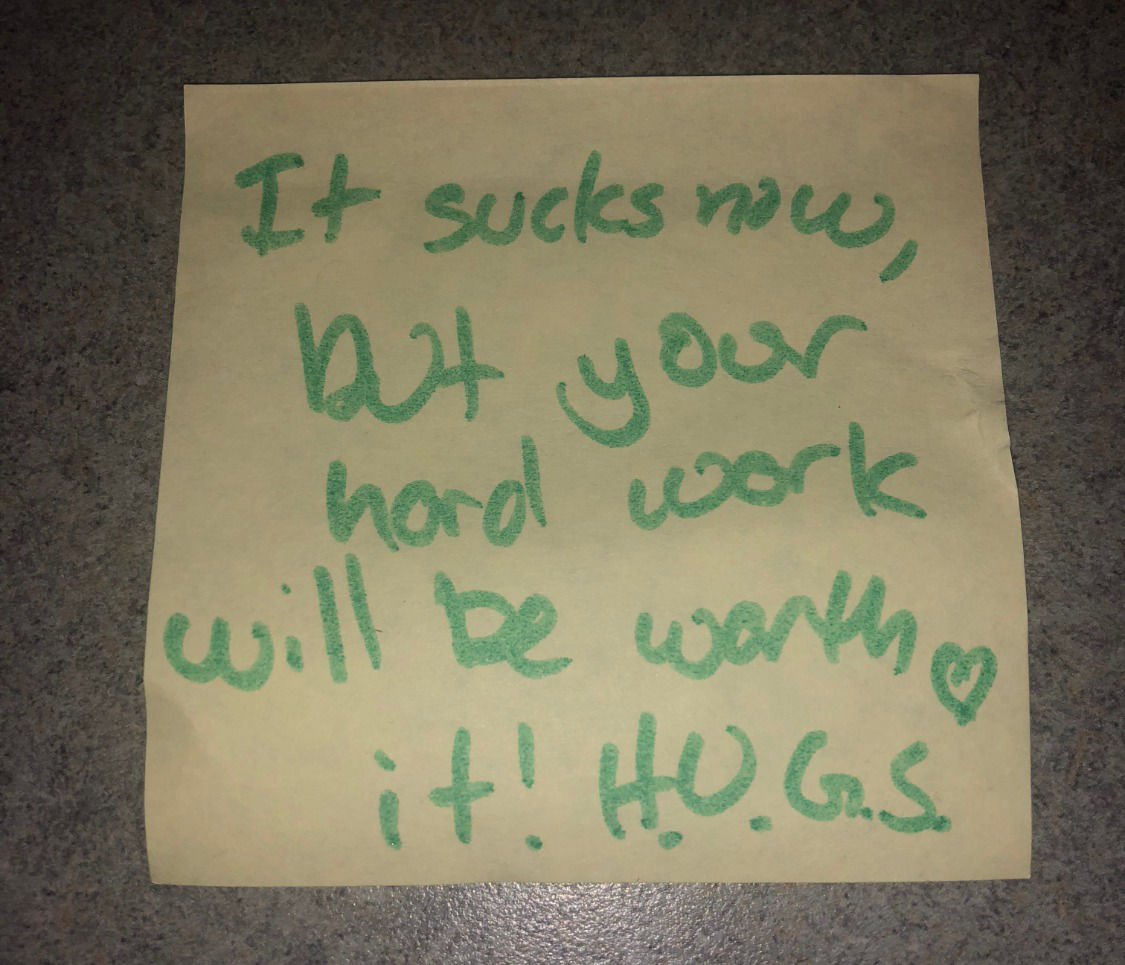 It sucks now,
but your
hard work
will be worth ♡
it! H.U.G.S.